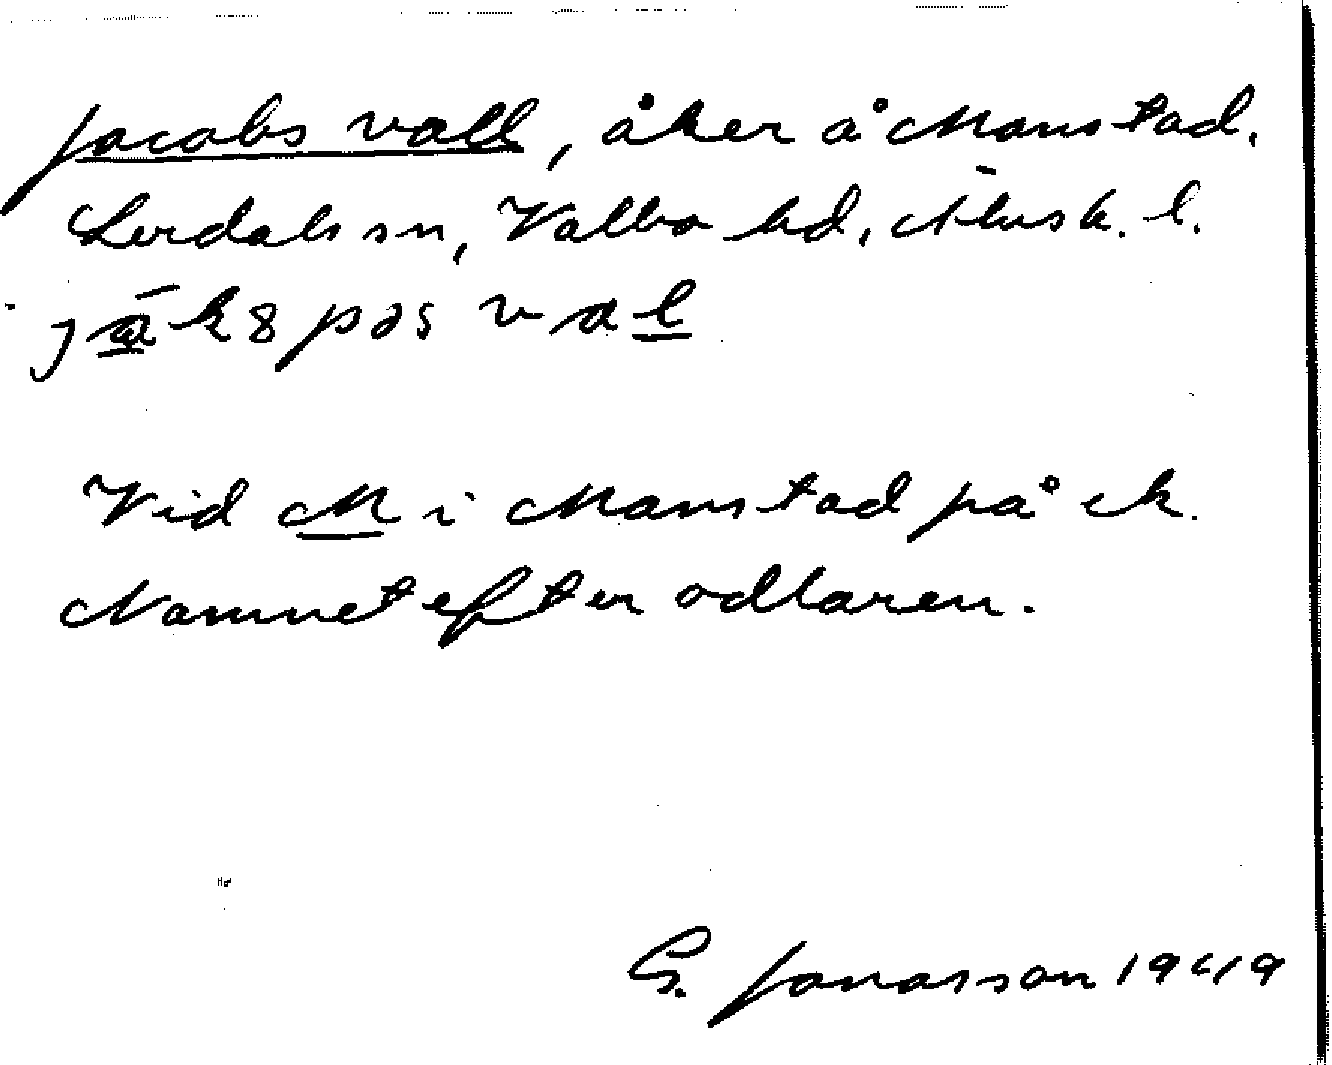 Jacobs vall, åker å Manstad.
Lerdals sn, Valbo hd, Älvsb. l.
Vid M i Manstad på ek.
Namnet efter odlaren.
G. Jonasson 1949